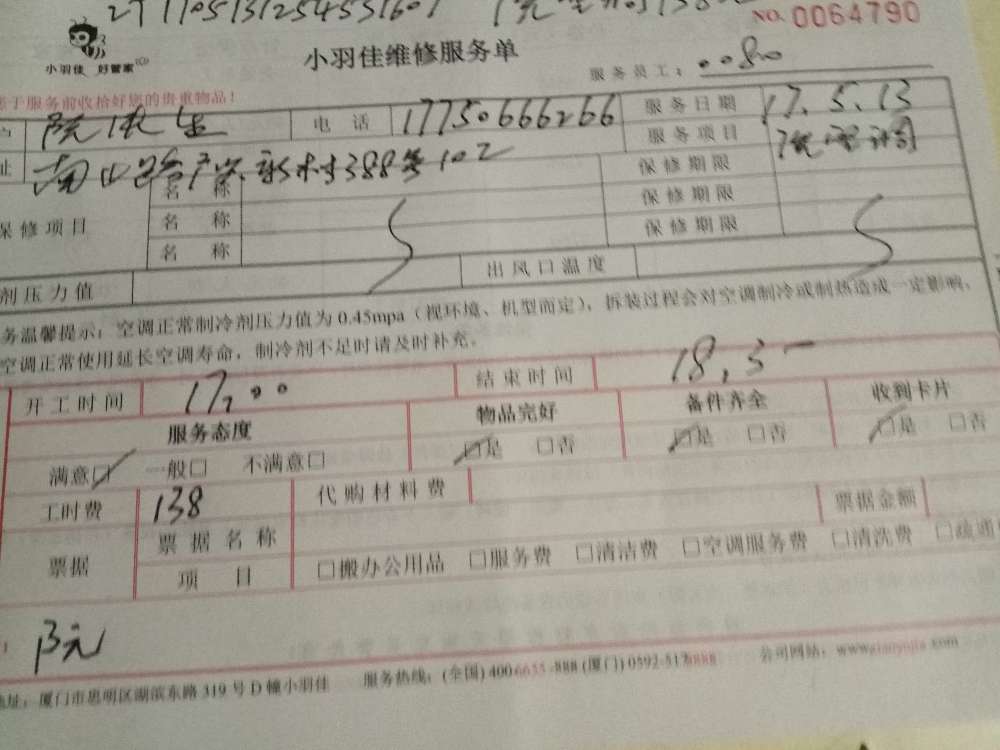 271705131254531601
NO. 0064790
小羽佳 好管家
小羽佳维修服务单
服务员工: 0080
于服务前收拾好您的贵重物品!
电话 17750666266 服务日期 17.5.13
址 388号102 服务项目
名称 保修期限
保修项目 名称 保修期限
名称 保修期限
剂压力值 出风口温度
务温馨提示: 空调正常制冷剂压力值为 0.45mpa (视环境、机型而定), 拆装过程会对空调制冷或制热造成一定影响,
空调正常使用延长空调寿命, 制冷剂不足时请及时补充。
开工时间 17:00 结束时间
服务态度 物品完好 备件齐全 收到卡片
满意□ 一般□ 不满意□ □是 □否 □是 □否 □是 □否
工时费 138 代购材料费
票据 票据名称 票据金额
项目 □搬办公用品 □服务费 □清洁费 □空调服务费 □清洗费 □疏通
阮
地址: 厦门市思明区湖滨东路 319 号 D 幢小羽佳 服务热线: (全国) 4006655-888 (厦门) 0592-5178888 公司网站: www.xiaoyujia.com